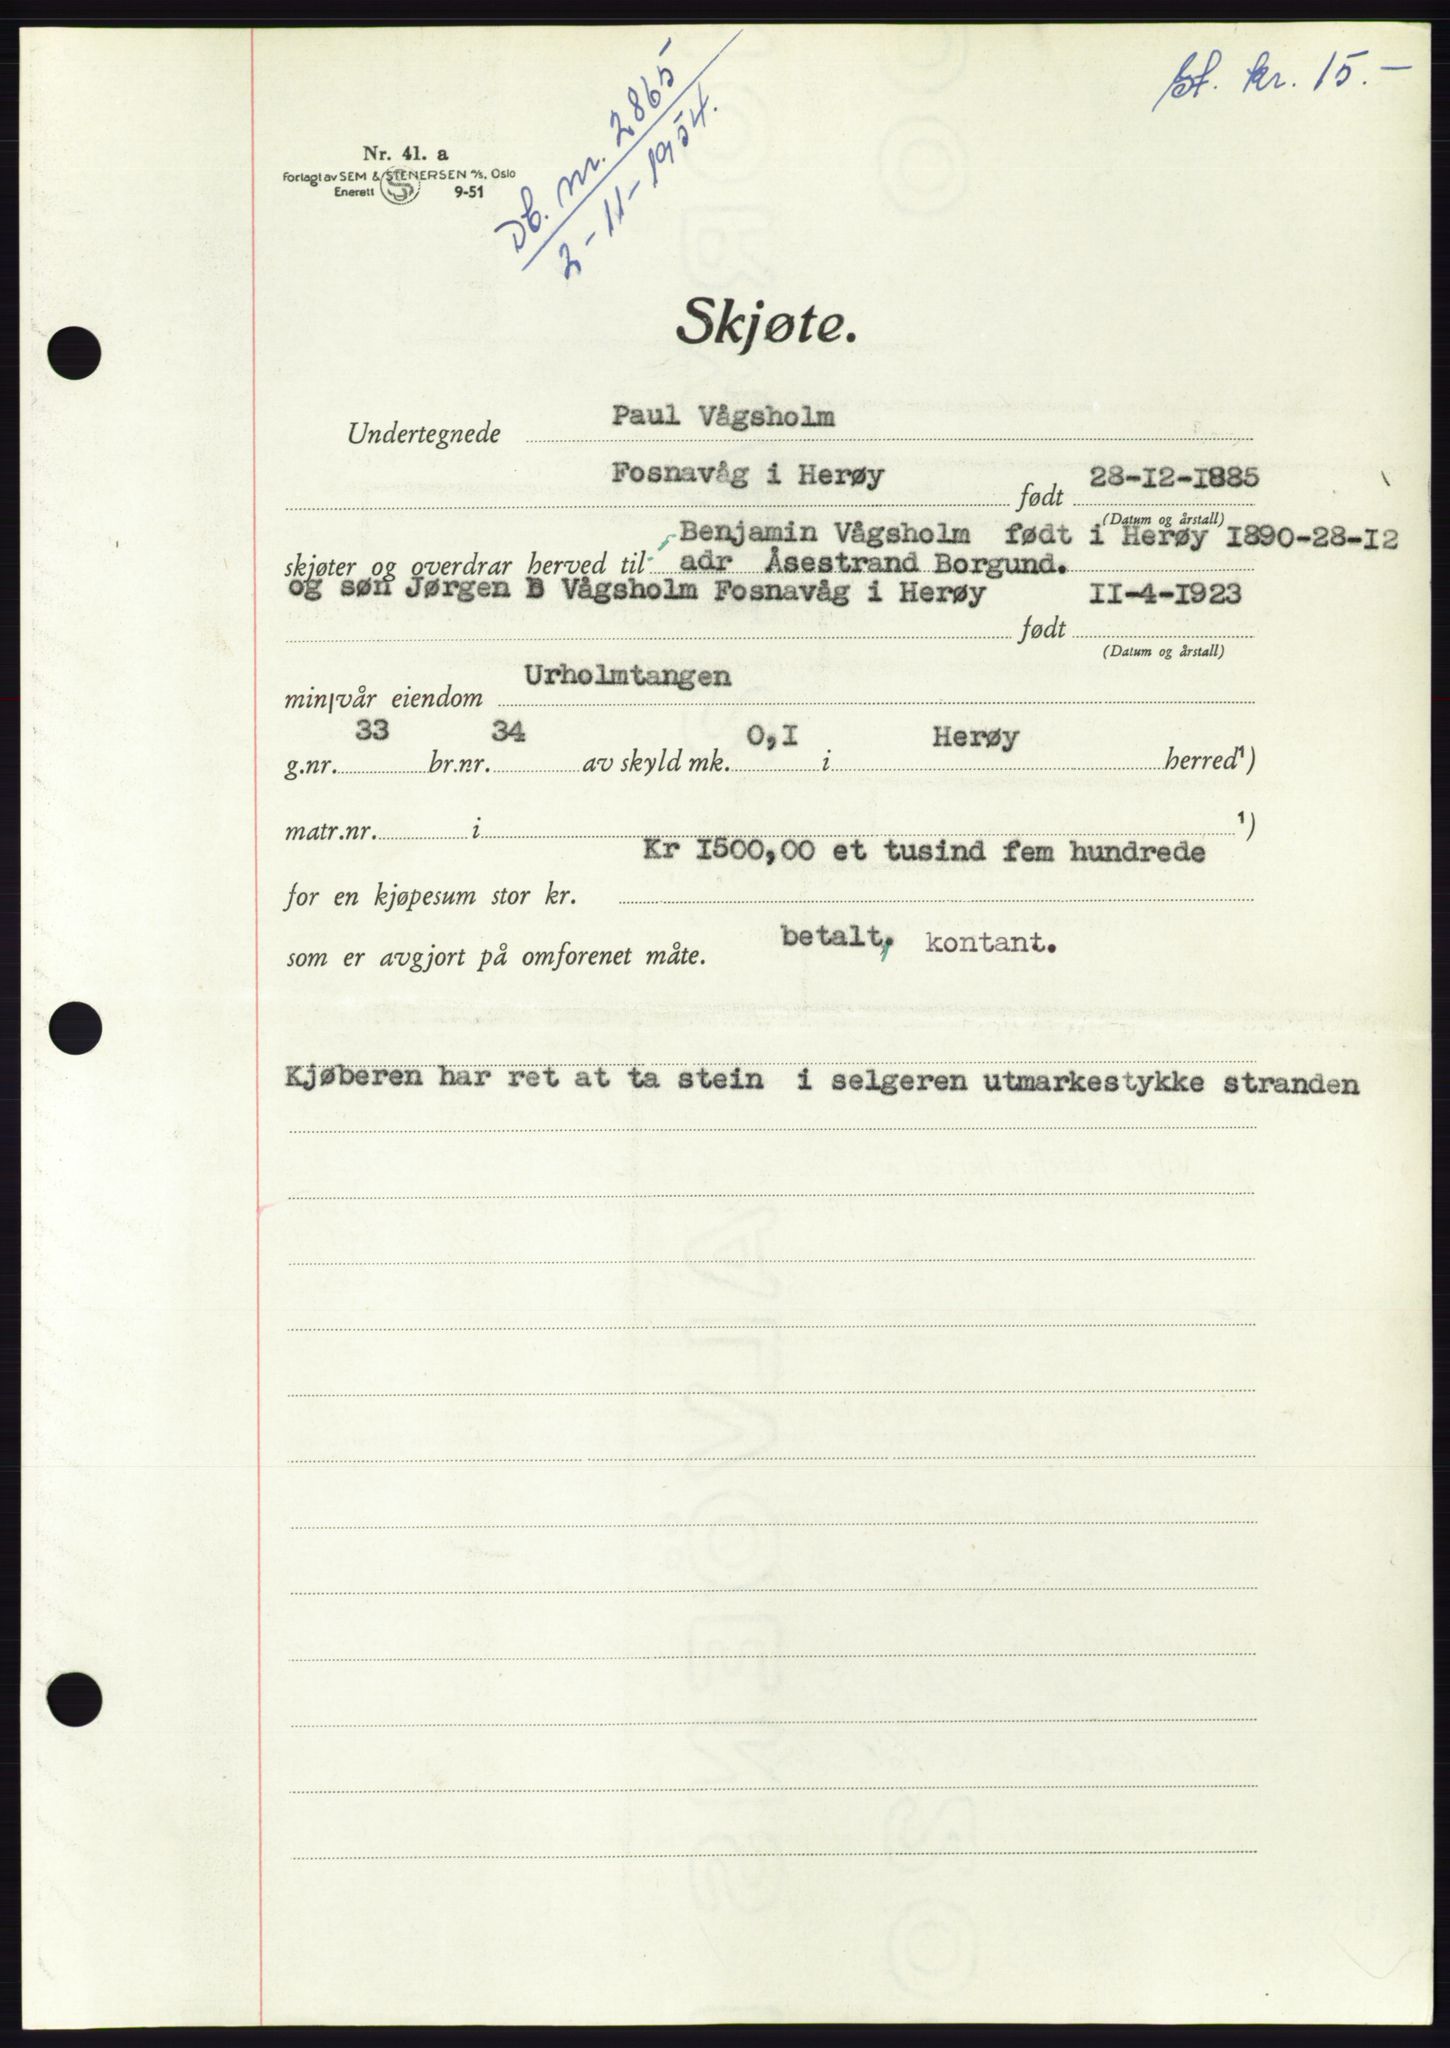 st. kr. 15.-
Db. nr. 2865
2-11-1954.
Nr. 41. a
Forlagt av SEM & STENERSEN A/S, Oslo
Enerett S 9-51
Skjøte.
Undertegnede Paul Vågsholm
Fosnavåg i Herøy født 28-12-1885
(Datum og årstall)
Benjamin Vågsholm født i Herøy 1890-28-12
skjøter og overdrar herved til adr Åsestrand Borgund.
og søn Jørgen B Vågsholm Fosnavåg i Herøy 11-4-1923
født
(Datum og årstall)
min/vår eiendom Urholmtangen
g.nr. 33 br.nr. 34 av skyld mk. 0,1 i Herøy herred¹)
matr.nr. i ¹)
Kr 1500,00 et tusind fem hundrede
for en kjøpesum stor kr.
som er avgjort på omforenet måte. betalt, kontant.
Kjøberen har ret at ta stein i selgeren utmarkestykke stranden